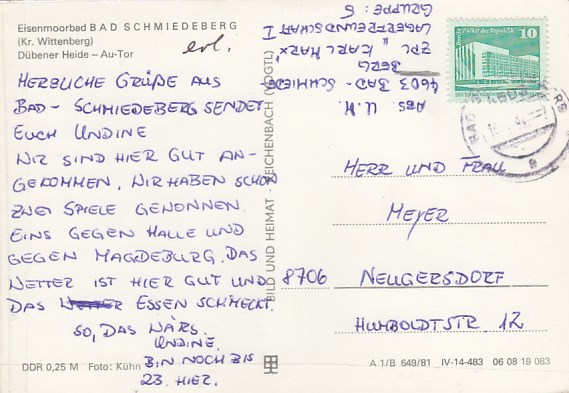 Eisenmoorbad BAD SCHMIEDEBERG
(Kr. Wittenberg)
Dübener Heide – Au-Tor
erl.
HERZLICHE GRÜßE AUS
BAD- SCHMIEDEBERG SENDET
EUCH UNDINE
WIR SIND HIER GUT AN-
GEKOMMEN. WIR HABEN SCHON
ZWEI SPIELE GEWONNEN.
EINS GEGEN HALLE UND
GEGEN MAGDEBURG. DAS
WETTER IST HIER GUT UND
DAS WETTER ESSEN SCHMECKT.
SO, DAS WÄRS.
UNDINE.
BIN NOCH BIS
23. HIER.
DDR 0,25 M Foto: Kühn
BILD UND HEIMAT · REICHENBACH (VOGTL)
ABS U.M.
4603 BAD-SCHMIEDE
BERG
ZPL „KARL MARX"
LAGERFREUNDSCHAFT I
GRUPPE: 5
Berlin, Palast der Republik
10
DDR
HERR UND FRAU
MEYER
8706 NEUGERSDORF
HUMBOLDTSTR 12
A 1/B 649/81 IV-14-483 06 08 19 083